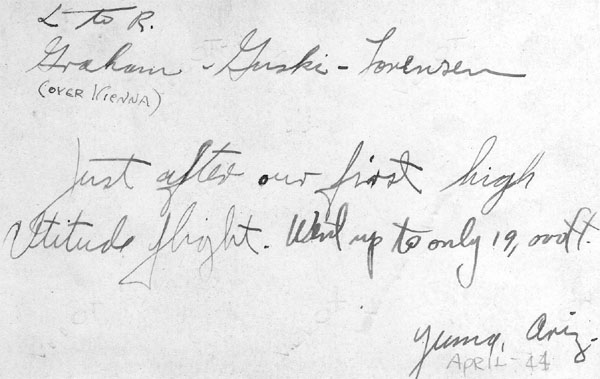 L to R.
Graham - Guski - Sorensen
(OVER VIENNA)
Just after our first high
altitude flight. Went up to only 19,000 ft.
Yuma, Ariz.
APRIL - 44